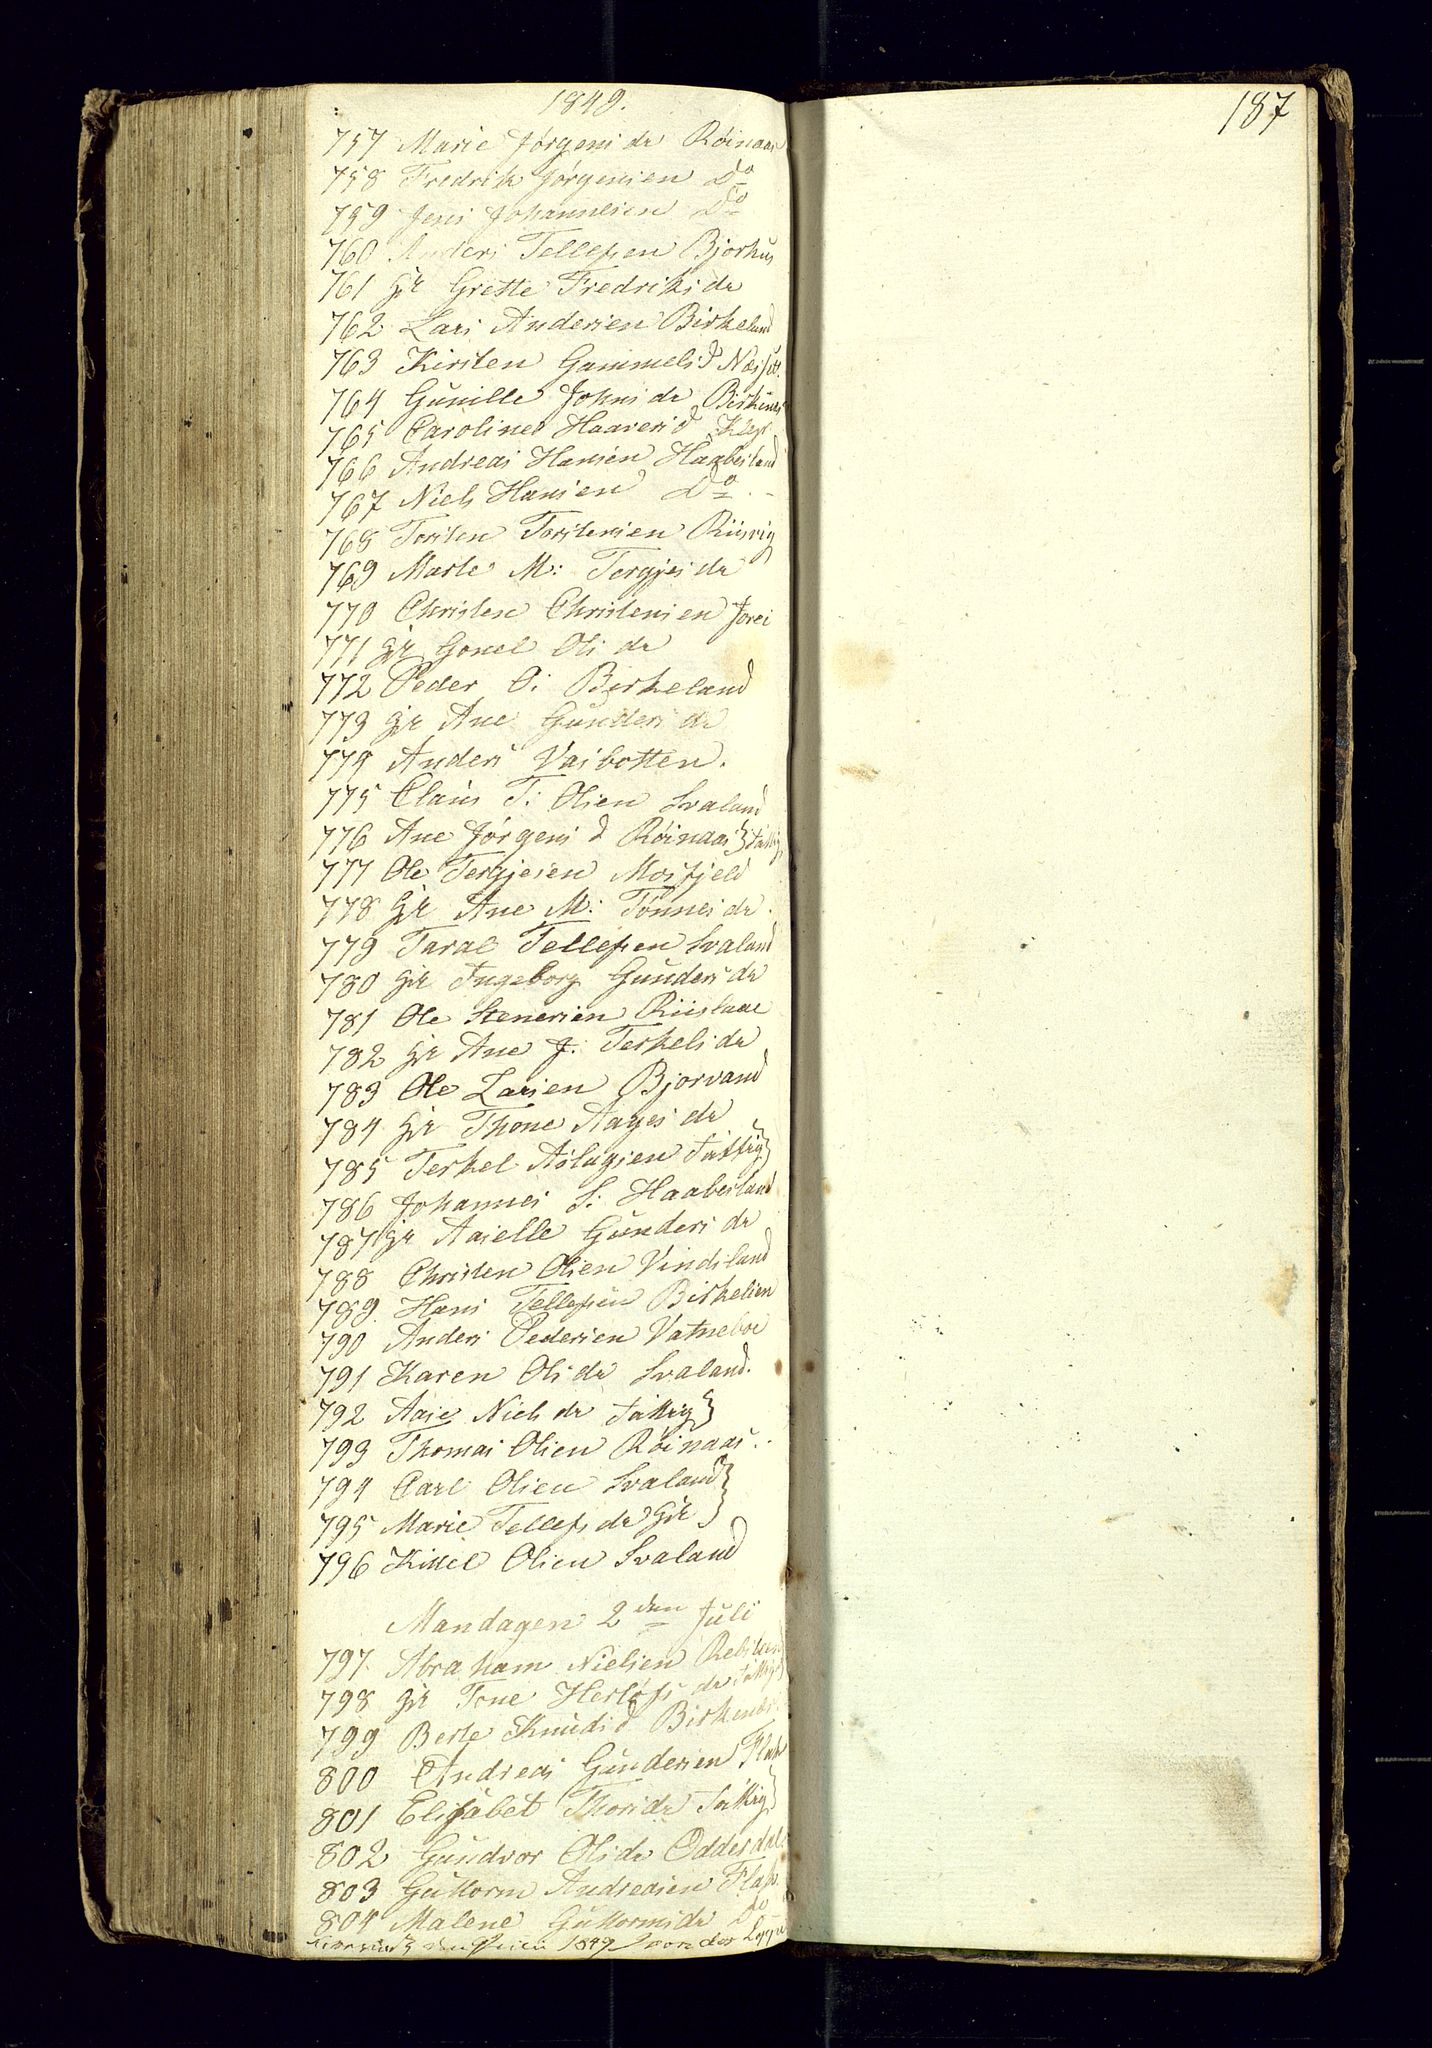 1849.
187
757 Marie Jörgensdr Röinaas
758 Fredrik Jörgensen Do
759 Jens Johannesen Do
760 Anders Tellefsen Bjorhus
761 Gk Grette Fredriksdr
762 Lars Andersen Birkeland
763 Kirsten Gammelsd
764 Gunille Johnsdr Birkenes
765 Caroline Haaversd Klep
766 Andreas Hansen Haabesland
767 Niels Hansen Do
768 Torsten Torstensen Riisvig
769 Marte M: Tergjesdr
770 Christen Christensen
771 Gk Gonel Olsdr
772 Peder O: Birkeland
773 Gk Ane Gundersdr
774 Anders Vasbotten.
775 Claus T: Olsen Svaland
776 Ane Jörgensd Röinaas } Fattig
777 Ole Tergjesen Mosfjeld
778 Gk Ane M: Tönnesdr
779 Taral Tellefsen Svaland
780 Gk Ingeborg Gundersdr
781 Ole Stenersen
782 Gk Ane J: Terkelsdr
783 Ole Larsen Bjorvand
784 Gk Thone Aagesdr
785 Terkel Aslagsen Fattig }
786 Johannes S: Haabesland
787 Gk Aaselle Gundersdr
788 Christen Olsen Vindsland
789 Hans Tellefsen Birkelien
790 Anders Pedersen Vatneboe
791 Karen Olsdr Svaland.
792 Aase Nielsdr Fattig }
793 Thomas Olsen Röinaas..
794 Carl Olsen Svaland }
795 Marie Tellefsdr Gk }
796 Kittel Olsen Svaland
Mandagen 2den Juli
797 Abraham Nielsen
798 Gk Tone Herlöfsdr Fattig
799 Berte Knudsd Birkenes
800 Andreas Gundersen Flak
801 Elisabet Thorsdr Fattig }
802 Gundvor Olsdr Oddersdal
803 Guttorm Andreasen Flak
804 Malene Guttormsdr Do
1849